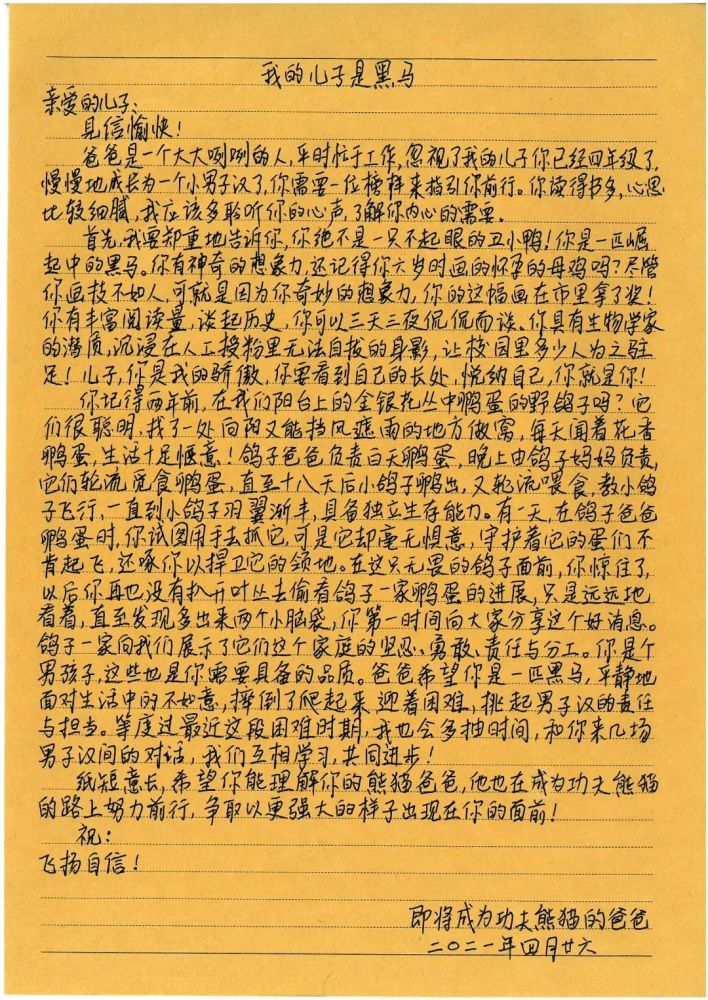 我的儿子是黑马
亲爱的儿子：
见信愉快！
爸爸是一个大大咧咧的人，平时忙于工作，忽视了我的儿子你已经四年级了，
慢慢地成长为一个小男子汉了，你需要一位榜样来指引你前行。你读得书多，心思
比较细腻，我应该多聆听你的心声，了解你内心的需要。
首先，我要郑重地告诉你，你绝不是一只不起眼的丑小鸭！你是一匹崛
起中的黑马。你有神奇的想象力，还记得你六岁时画的怀孕的母鸡吗？尽管
你画技不如人，可就是因为你奇妙的想象力，你的这幅画在市里拿了奖！
你有丰富阅读量，谈起历史，你可以三天三夜侃侃而谈。你具有生物学家
的潜质，沉浸在人工授粉里无法自拔的身影，让校园里多少人为之驻
足！儿子，你是我的骄傲，你要看到自己的长处，悦纳自己，你就是你！
你记得两年前，在我们阳台上的金银花丛中孵蛋的野鸽子吗？它
们很聪明，找了一处向阳又能挡风遮雨的地方做窝，每天闻着花香
孵蛋，生活十足惬意！鸽子爸爸负责白天孵蛋，晚上由鸽子妈妈负责，
它们轮流觅食孵蛋，直至十八天后小鸽子孵出，又轮流喂食，教小鸽
子飞行，一直到小鸽子羽翼渐丰，具备独立生存能力。有一天，在鸽子爸爸
孵蛋时，你试图用手去抓它，可是它却毫无惧意，守护着它的蛋们不
肯起飞，还啄你以捍卫它的领地。在这只无畏的鸽子面前，你惊住了，
以后你再也没有扒开叶丛去偷看鸽子一家孵蛋的进展，只是远远地
看着，直至发现多出来两个小脑袋，你第一时间向大家分享这个好消息。
鸽子一家向我们展示了它们这个家庭的坚忍、勇敢、责任与分工。你是个
男孩子，这些也是你需要具备的品质。爸爸希望你是一匹黑马，平静地
面对生活中的不如意，摔倒了爬起来，迎着困难，挑起男子汉的责任
与担当。等度过最近这段困难时期，我也会多抽时间，和你来几场
男子汉间的对话，我们互相学习，共同进步！
纸短意长，希望你能理解你的熊猫爸爸，他也在成为功夫熊猫
的路上努力前行，争取以更强大的样子出现在你的面前！
祝：
飞扬自信！
即将成为功夫熊猫的爸爸
二〇二一年四月廿六